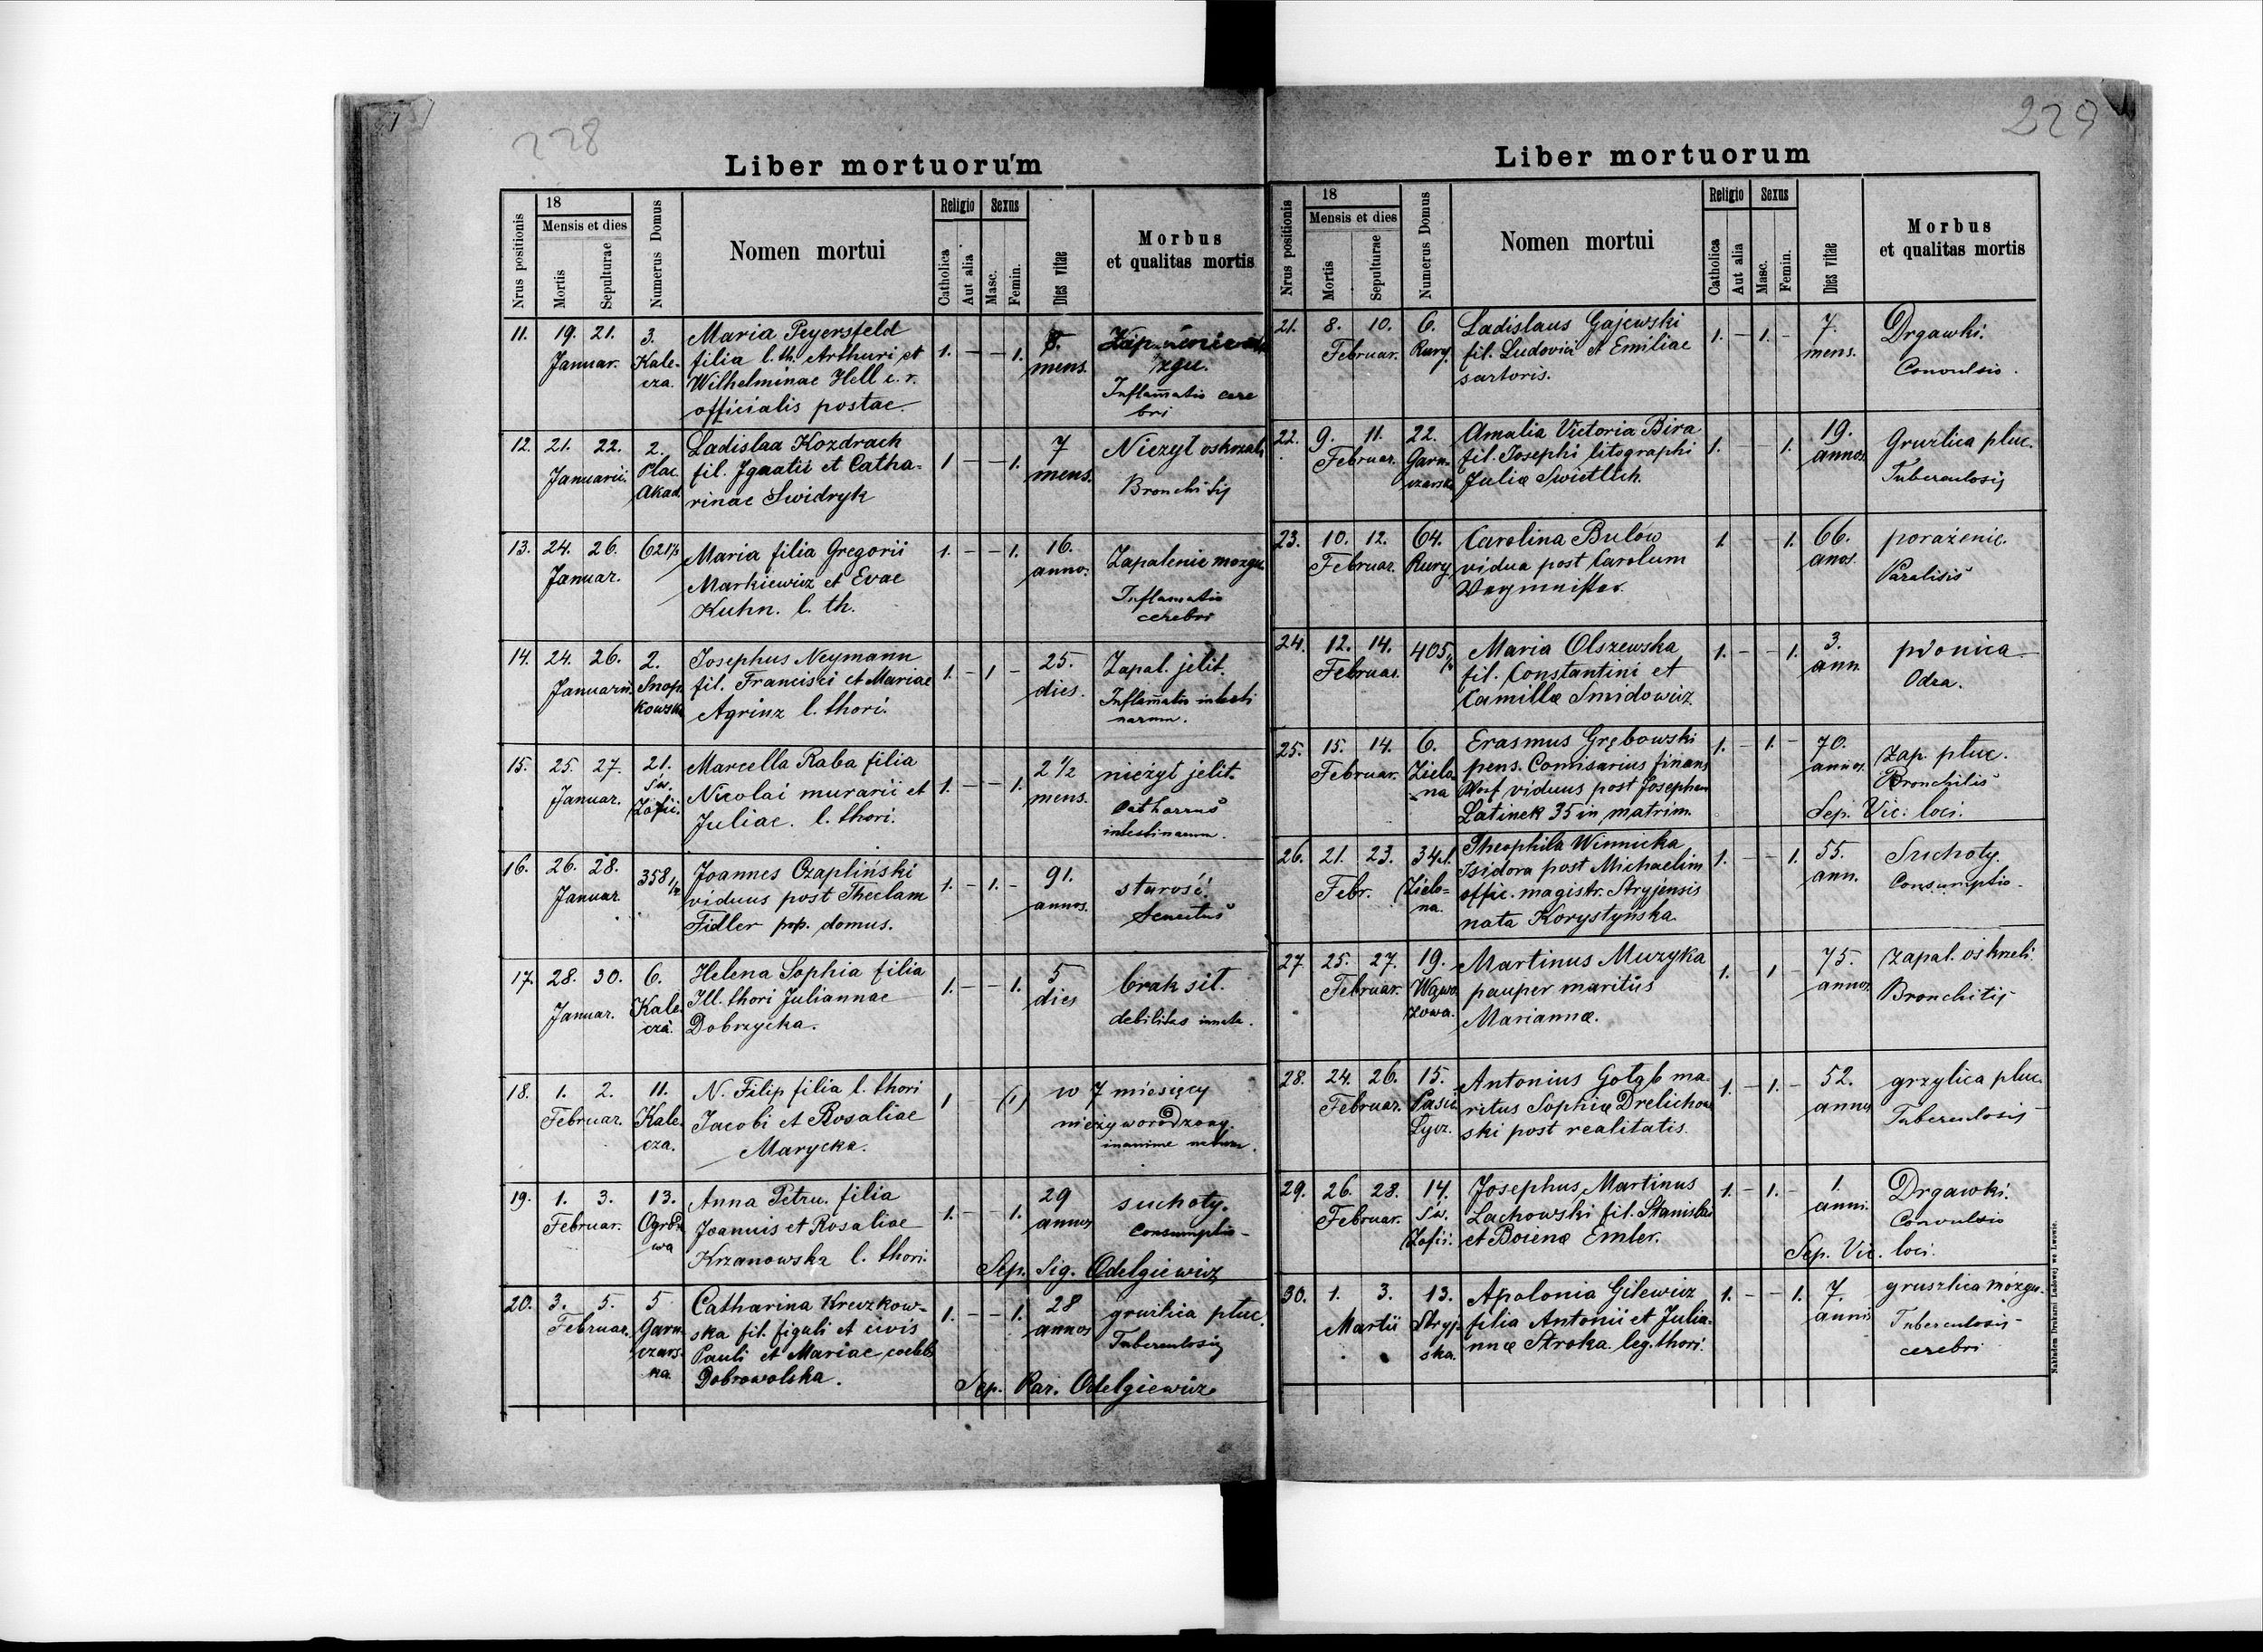 228
Liber mortuorum
Nrus positionis
18
Mensis et dies
Mortis
Sepulturae
Numerus Domus
Nomen mortui
Religio
Catholica
Aut alia
Sexus
Masc.
Femin.
Dies vitae
Morbus
et qualitas mortis
11. 19. 21. 3. Maria Peyersfeld
Januar. Kale- filia l. th. Arthuri et 1. - - 1. 8. mens.
cza. Wilhelminae Hell c. r. zgu.
officialis postae. Inflam̄atio cere
bri
12. 21. 22. 2. Ladislaa Kozdrach 7 Nieżyt oskrzeli
Januarii. Plac. fil. Jgnatii et Catha- 1 - - 1. mens.
Akad. rinae Swidryk Bronchitis
13. 24. 26. 621 1/2 Maria filia Gregorii 1. - - 1. 16. Zapalenie mozgu
Januar. Markiewicz et Evae annos. Inflamatio
Kuhn. l. th. cerebri
14. 24. 26. 2. Josephus Neymann 25. Zapal. jelit.
Januarii. Snop fil. Francisci et Mariae 1. - 1 - dies. Inflam̄atio intesti
kowska Agrinz l. thori. narum.
15. 25. 27. 21. Marcella Raba filia 2 1/2 nieżyt jelit.
Januar. Św. Nicolai murarii et 1. - - 1. mens. Catharrus
Zofii. Juliae. l. thori. intestinarum.
16. 26. 28. 358 1/2 Joannes Czapliński 91. starość.
Januar. viduus post Theclam 1. - 1. - annos. Senectus
Fidler pop. domus.
17. 28. 30. 6. Helena Sophia filia 5 brak sił.
Januar. Kale- Ill. thori Juliannae 1. - - 1. dies
cza. Dobrzycka. debilitas innata.
18. 1. 2. 11. N. Filip filia l. thori w 7 miesięcy
Februar. Kale- Jacobi et Rosaliae 1 - (1) nieżyworodzony.
cza. Marycka. inanime natum.
19. 1. 3. 13. Anna Petru. filia 29 suchoty.
Februar. Ogrodo Joannis et Rosaliae 1. - - 1. annos Consumptio -
wa Krzanowska l. thori. Sep. Sig. Odelgiewicz
20. 3. 5. 5 Catharina Kreczkow- 1. - - 1. 28 gruźlica płuc.
Februar. Garn- ska fil. figuli et civis annos Tuberculosis
czars- Pauli et Mariae coelebs
ka Dobrowolska. Sep. Par. Odelgiewicz.
229
Liber mortuorum
Nrus positionis
18
Mensis et dies
Mortis
Sepulturae
Numerus Domus
Nomen mortui
Religio
Catholica
Aut alia
Sexus
Masc.
Femin.
Dies vitae
Morbus
et qualitas mortis
21. 8. 10. 6. Ladislaus Gajewski 1. - 1. - 7. Drgawki.
Februar. Rury. fil. Ludovici et Emiliae mens.
sartoris. Convulsio.
22. 9. 11. 22. Amalia Victoria Bira 19. Gruzlica płuc.
Februar. Garn- fil. Josephi litographi 1. 1. annos. Tuberculosis
czarska Juliæ Swietlich.
23. 10. 12. 64. Carolina Bulow 1. - 1. 66. porażenie.
Februar. Rury vidua post Carolum anos. Paralisis
24. 12. 14. 405 1/2 Maria Olszewska 1. - - 1. 3. płonica
Februar. fil. Constantini et ann. Odra.
Camillæ Smidowicz.
25. 15. 14. 6. Erasmus Grębowski 1. - 1. - 70. Zap. płuc.
Februar. Zielo pens. Comisarius finans annos. Bronchitis
na viduus post Josepham
Latinek 35 in matrim. Sep. Vic. loci.
26. 21. 23. 34 Theophila Winnicka 1. - - 1. 55. Suchoty.
Febr. Zielo- Isidora post Michaelim ann. Consumptio.
na. offic. magistr. Stryjensis
nata Korystyńska.
27 25. 27. 19. Martinus Muzyka 1. 1 - 75. zapal. oskrzeli.
Februar. Wąwo pauper maritus annos. Bronchitis
zowa. Mariannæ.
28. 24. 26. 15. Antonius Gołąb ma- 1. - 1. - 52. grzylica płuc.
Februar. Pasie. ritus Sophiæ Drelichow annos Tuberculosis
Lycz. ski post realitatis.
29. 26. 28. 14. Josephus Martinus 1. - 1. - 1. Drgawki.
Februar. Św. Lachowski fil. Stanislai anni. Convulsio
Zofii. et Boienæ Emler. Sep. Vic. loci.
30. 1. 3. 13. Apolonia Gilewicz 1. - - 1. 7. gruszlica mózgu.
Martii Stryj- filia Antonii et Julia- annis Tuberculosis -
ska. nnæ Stroka. leg. thori. cerebri
Nakładem Drukarni Ludowej we Lwowie.